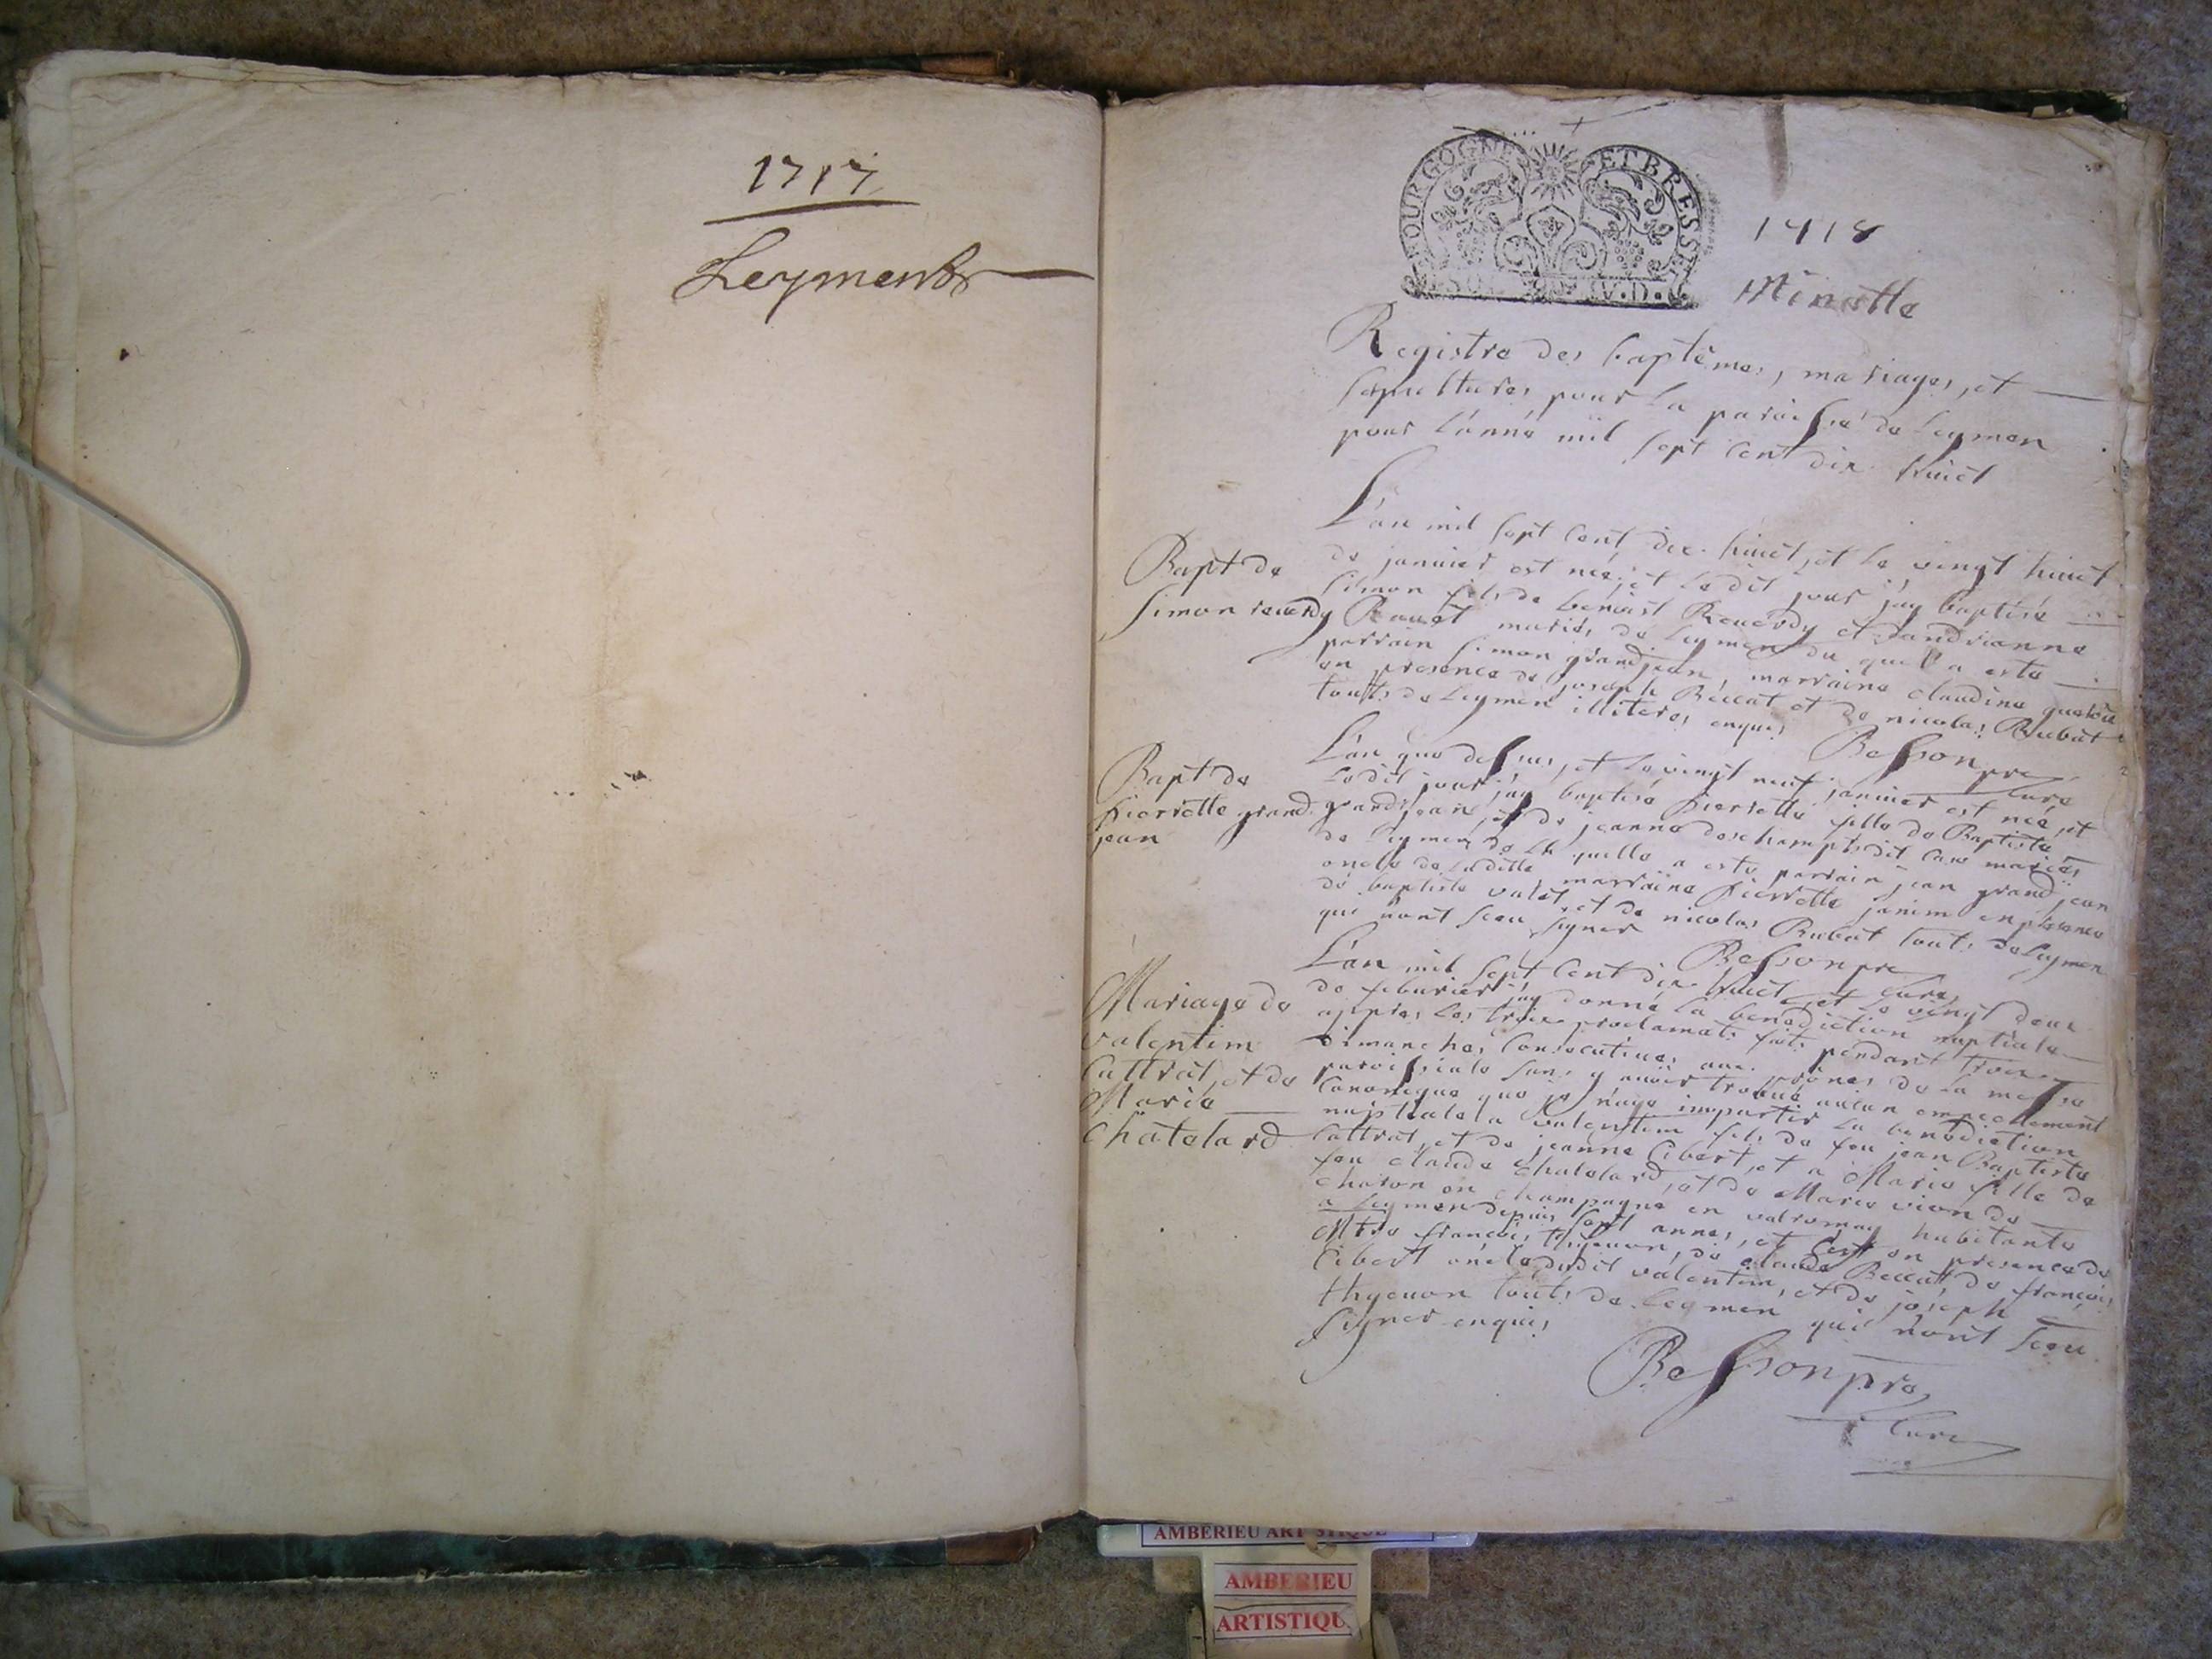 1717
Leyment
BOURGOGNE ET BRESSE
1718
Minutte
Registre des baptêmes, mariages, et
sepultures pour la paroisse de Leymen
pour l'anné mil sept cent dix huict
Bapt de
simon reuerdy
L'an mil sept cent dix huict, et le vingt huict
de januier est née, et le dit jour j'ay baptisé
simon fils de benoist Reuerdy et d'andrianne
mariés de Leymen du quel a esté
parrain simon grandjean, marraine claudine
en presence de joseph Beccat et de nicolas Rubat
touts de Leymen illiteres enquis
Besson pre
Curé
Bapt de
pierrette grand
jean
L'an que dessus, et le vingt neuf januier est née, et
le dit jour j'ay baptisé pierrette fille de Baptiste
grandjean, et de jeanne deschamps dit mariés
de Leymen de la quelle a esté parrain jean grand jean
oncle de laditte, marraine pierrette janim en presence
de baptiste valet, et de nicolas Rubat touts de Leymen
qui n'ont sceu signer
Besson pre
Curé
Mariage de
valentim
Cattrat, et de
Marie
Chatelard
L'an mil sept cent dix huict, et le vingt deux
de feburier j'ay donné la benediction nuptiale
appres les trois proclamats faits pendant trois
dimanches consecutiues aux prônes de la messe
paroissiale sans y auoir trouué aucun empechement
canonique que je n'aye impartir la benediction
nuptiale a valentim fils de feu jean Baptiste
Cattrat, et de jeanne Cibert, et a Marie fille de
feu claude chatelard, et de Marie vion de
charon en champagne en valromay habitante
a Leymen depuis sept annes, et c'est en presence de
Mtre françois thyeuon, de claude Beccat, de françois
Cibert oncle dudit valentim, et de joseph
thyeuon touts de Leymen qui n'ont sceu
signer enquis
Besson pre
Curé
AMBERIEU ARTISTIQUE
AMBERIEU
ARTISTIQU